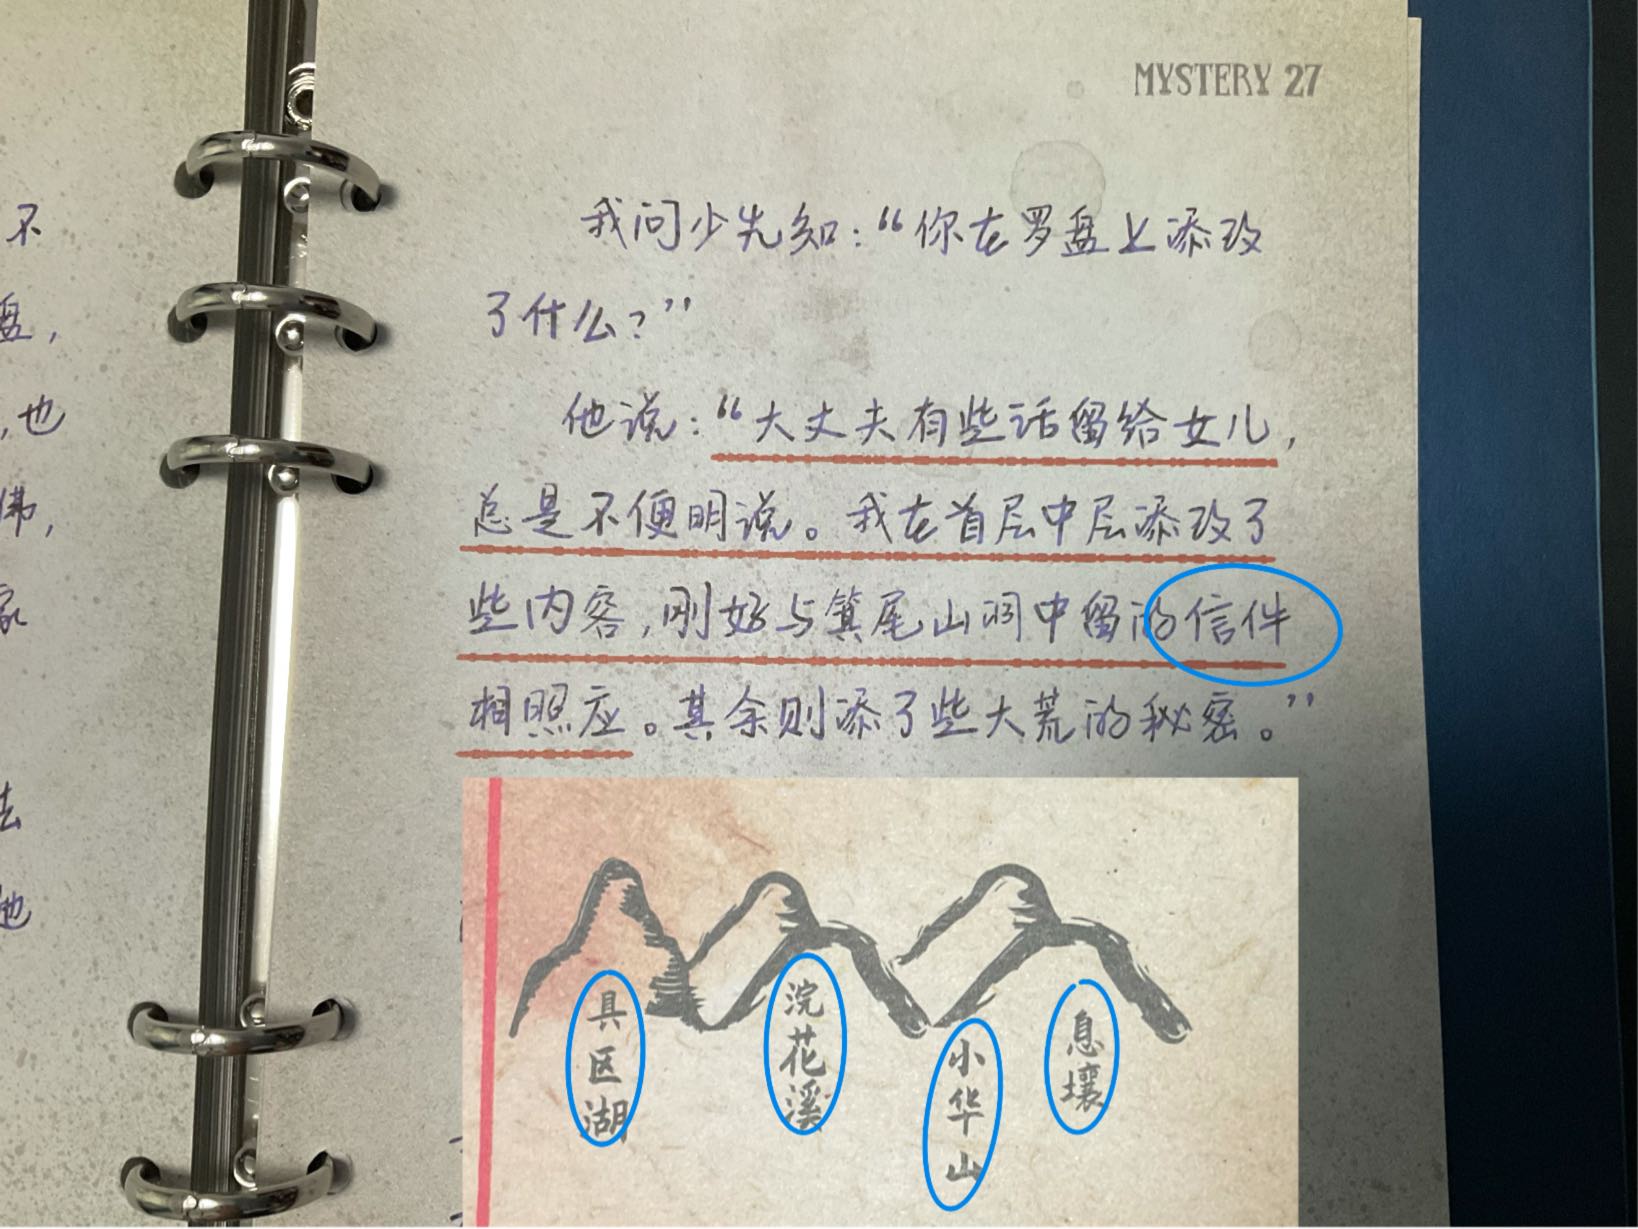 MYSTERY 27
不
盘，
，也
佛，
家
去
他
我问少先知：“你在罗盘上添改
了什么？”
他说：“大丈夫有些话留给女儿，
总是不便明说。我在首层中层添改了
些内容，刚好与箕尾山洞中留的信件
相照应。其余则添了些大荒的秘密。”
具区湖
浣花溪
小华山
息壤